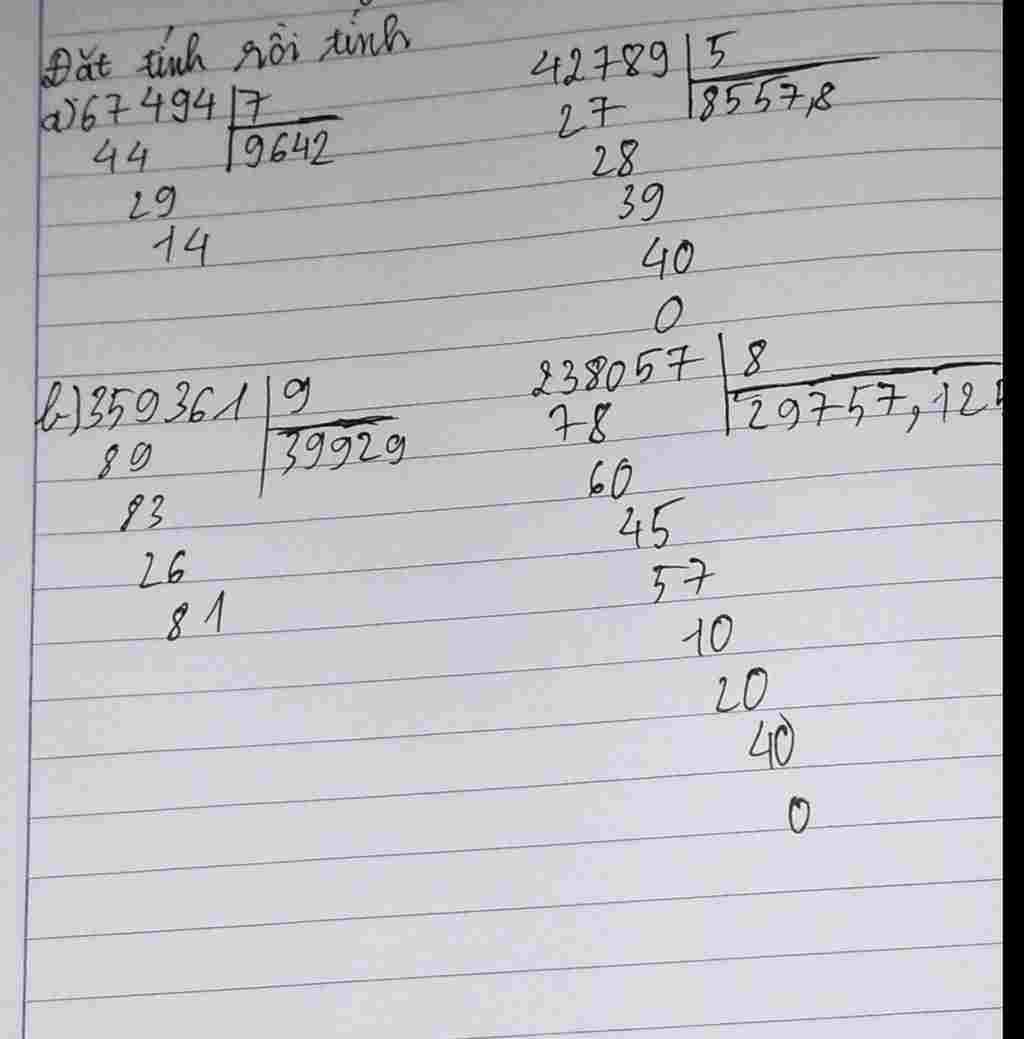 Đặt tính rồi tính
a) 67494 7
44 9642
29
14
42789 5
27 8557,8
28
39
40
0
b) 359361 9
89 39929
83
26
81
238057 8
78 29757,125
60
45
57
10
20
40
0